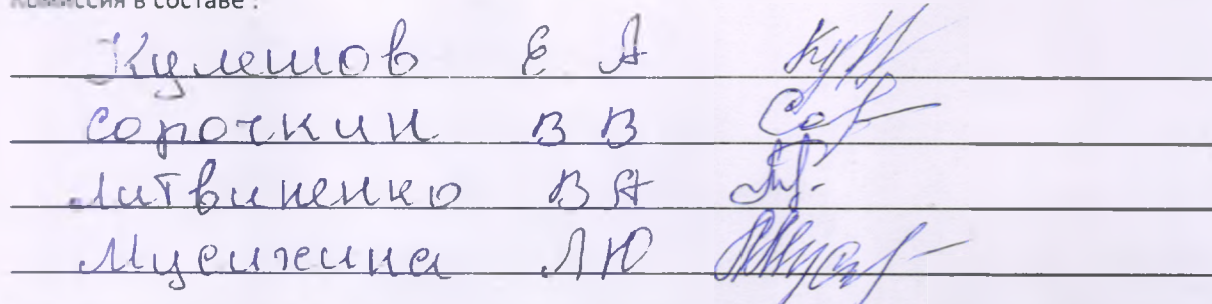 Комиссия в составе :
Кулешов Е А
Сорочкин В В
Литвиненко В А
Л Ю